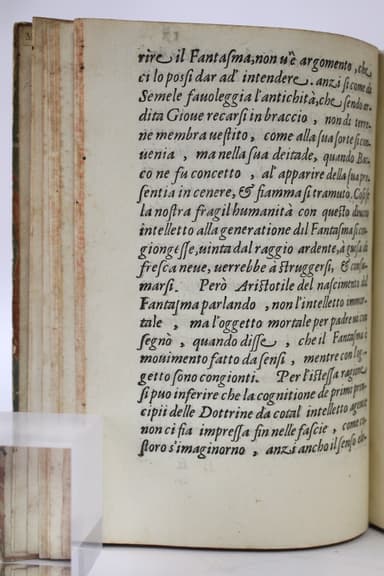 rire il Fantasma, non u'è argomento, che
ci lo possi dar ad' intendere. anzi si come di
Semele fauoleggia l'antichità, che sendo ar-
dita Gioue recarsi in braccio, non di terre-
ne membra uestito, come alla sua sorte si con-
uenia, ma nella sua deitade, quando Bac-
co ne fù concetto, al' apparire della sua pre-
sentia in cenere, & fiamma si tramutò. Così se
la nostra fragil humanità con questo diuino
intelletto alla generatione dil Fantasma si con-
giongesse, uinta dal raggio ardente, à guisa di
fresca neue, uerrebbe à struggersi, & consu-
marsi. Però Aristotile del nascimento del
Fantasma parlando, non l'intelletto immor-
tale, ma l'oggetto mortale per padre ne con-
segnò, quando disse, che il Fantasma è
mouimento fatto da sensi, mentre con l'og-
getto sono congionti. Per l'istessa ragione
si puo inferire che la cognitione de primi prin-
cipii delle Dottrine da cotal intelletto agente
non ci sia impressa fin nelle fascie, come co-
storo s'imaginorno, anzi ancho il senso